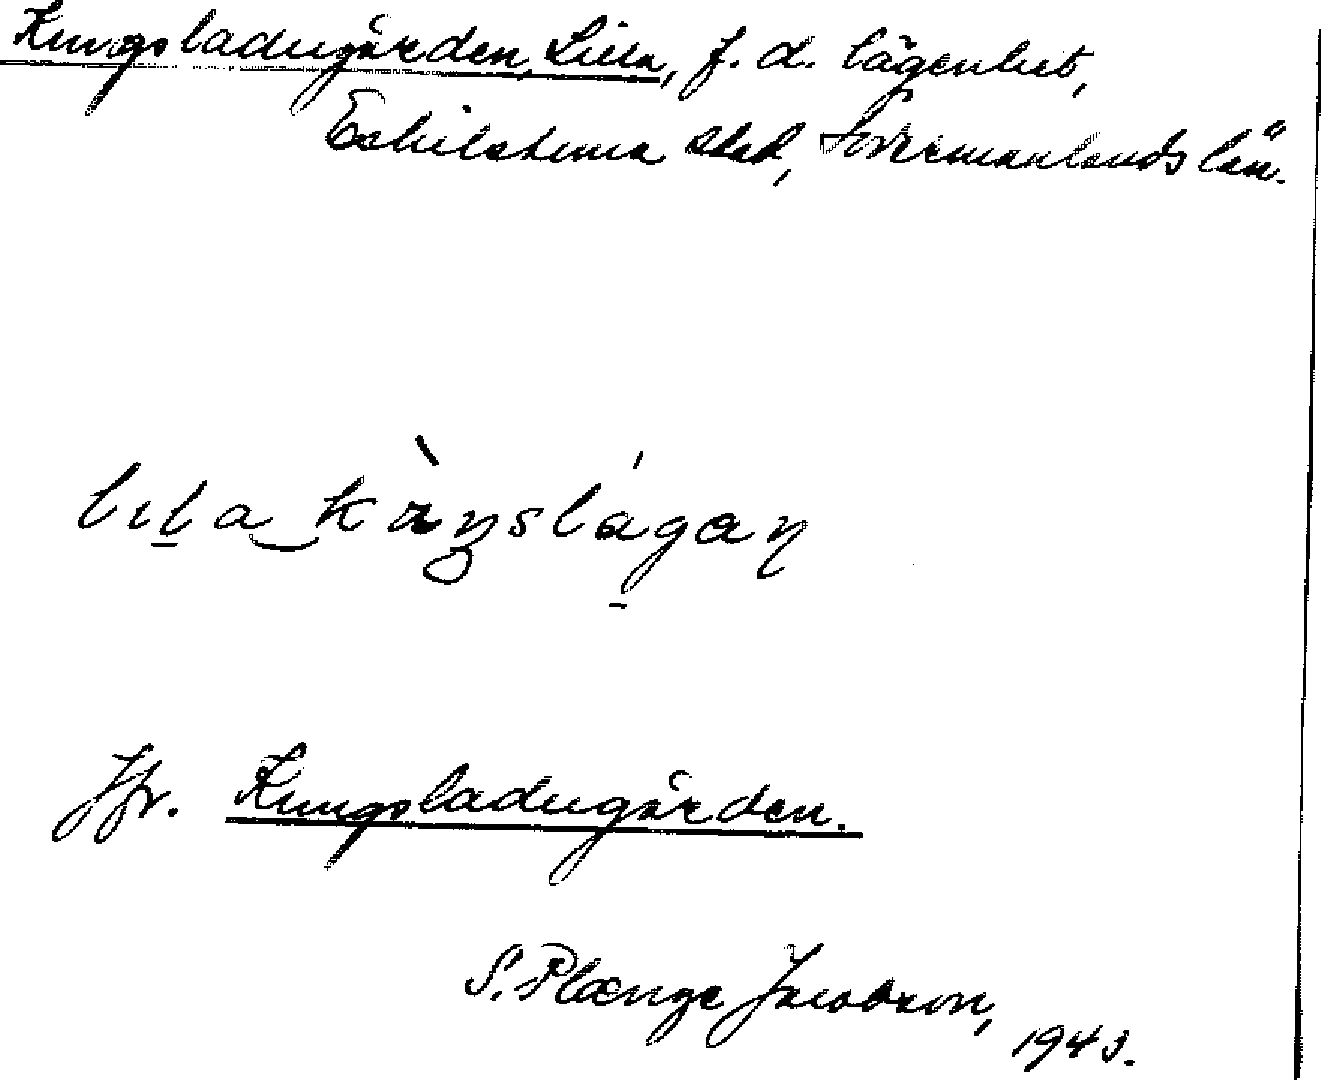 Kungsladugården, Lilla, f. d. lägenhet,
Eskilstuna stad, Södermanlands län.
Jfr. Kungsladugården.
S. Plænge Jacobson,
1943.